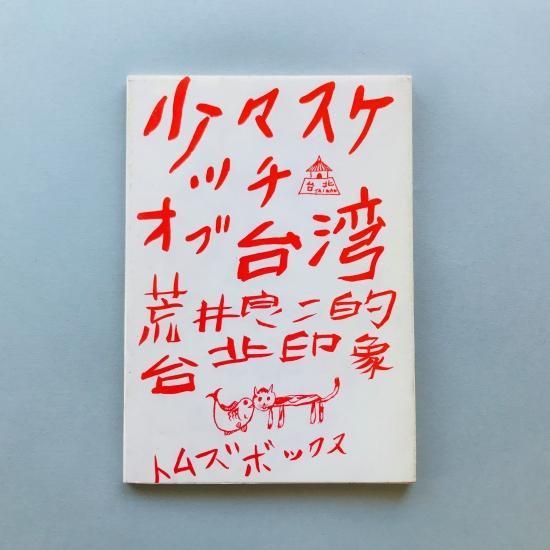 少々スケ
ッチ
オブ台湾
荒井良二的
台北印象
トムズボックス
台北